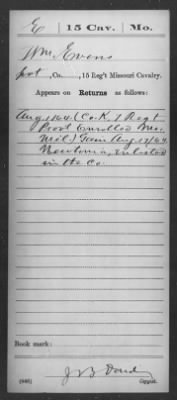 E | 15 Cav. | Mo.
Wm. Evens
Pvt, Co. , 15 Reg't Missouri Cavalry.
Appears on Returns as follows:
Aug 1864 (Co. K, 7 Regt
Provl Enrolled Mo.
Mil) Gain Aug 17/64
Newtonia, enlisted
in the Co.
Book mark:
(546)
Copyist.